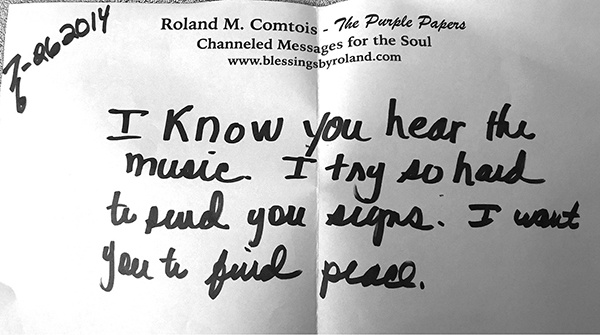 7-262014
6
Roland M. Comtois - The Purple Papers
Channeled Messages for the Soul
www.blessingsbyroland.com
I Know you hear the
music. I try so hard
to send you signs. I want
you to find peace.